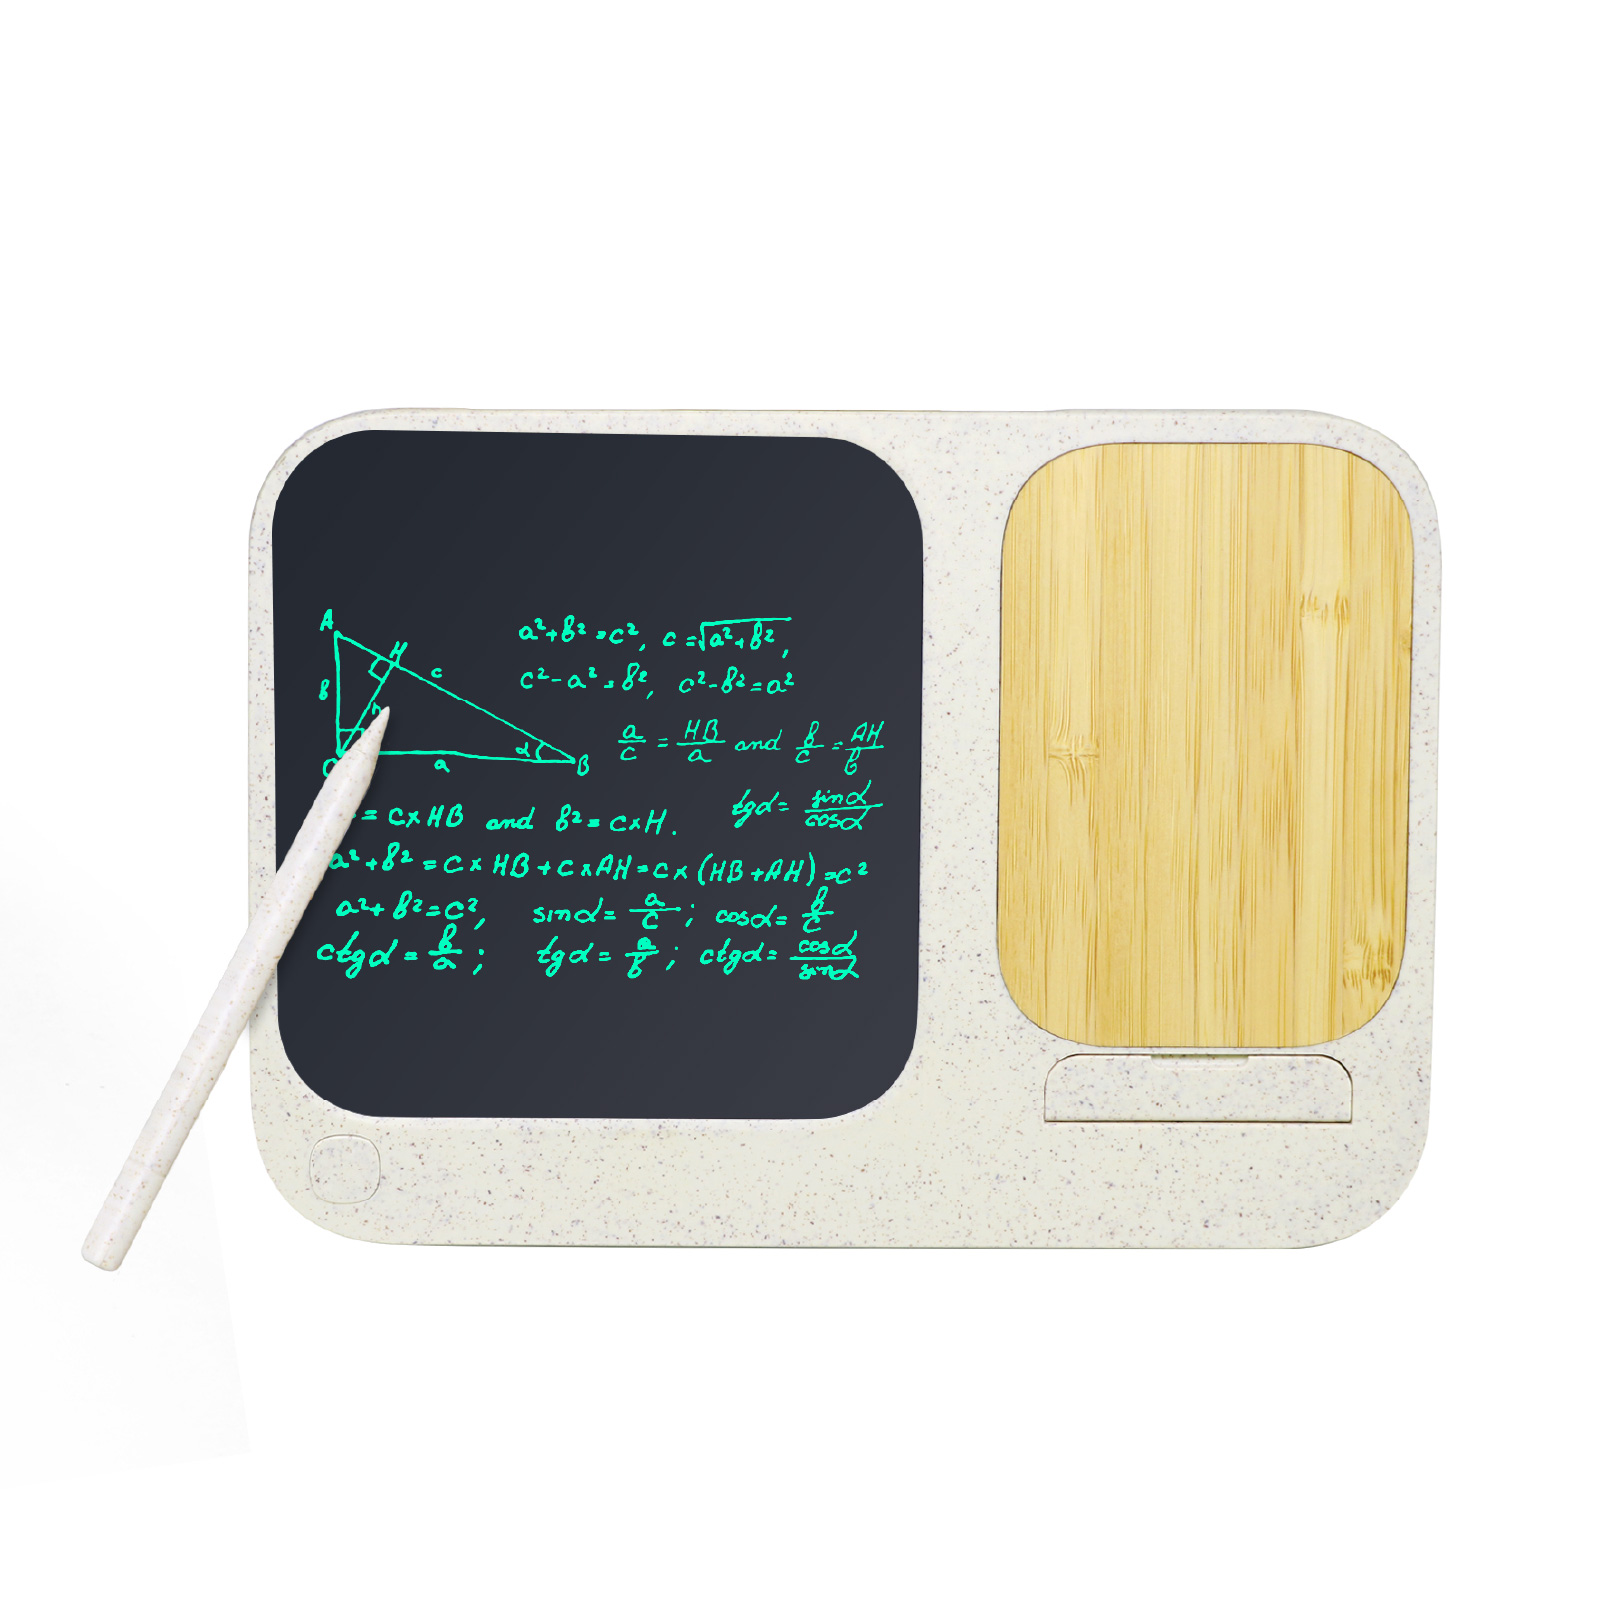 A
H
c
b
h
α
a
B
a²+b²=c², c=√a²+b²,
c²-a²=b², c²-b²=a²
a/c = HB/a and b/c = AH/b
tgα = sinα/cosα
= c×HB and b² = c×H.
a²+b² = c×HB+c×AH=c×(HB+AH)=c²
a²+b²=c², sinα= a/c; cosα= b/c
ctgα = b/a; tgα = a/b; ctgα= cosα/sinα